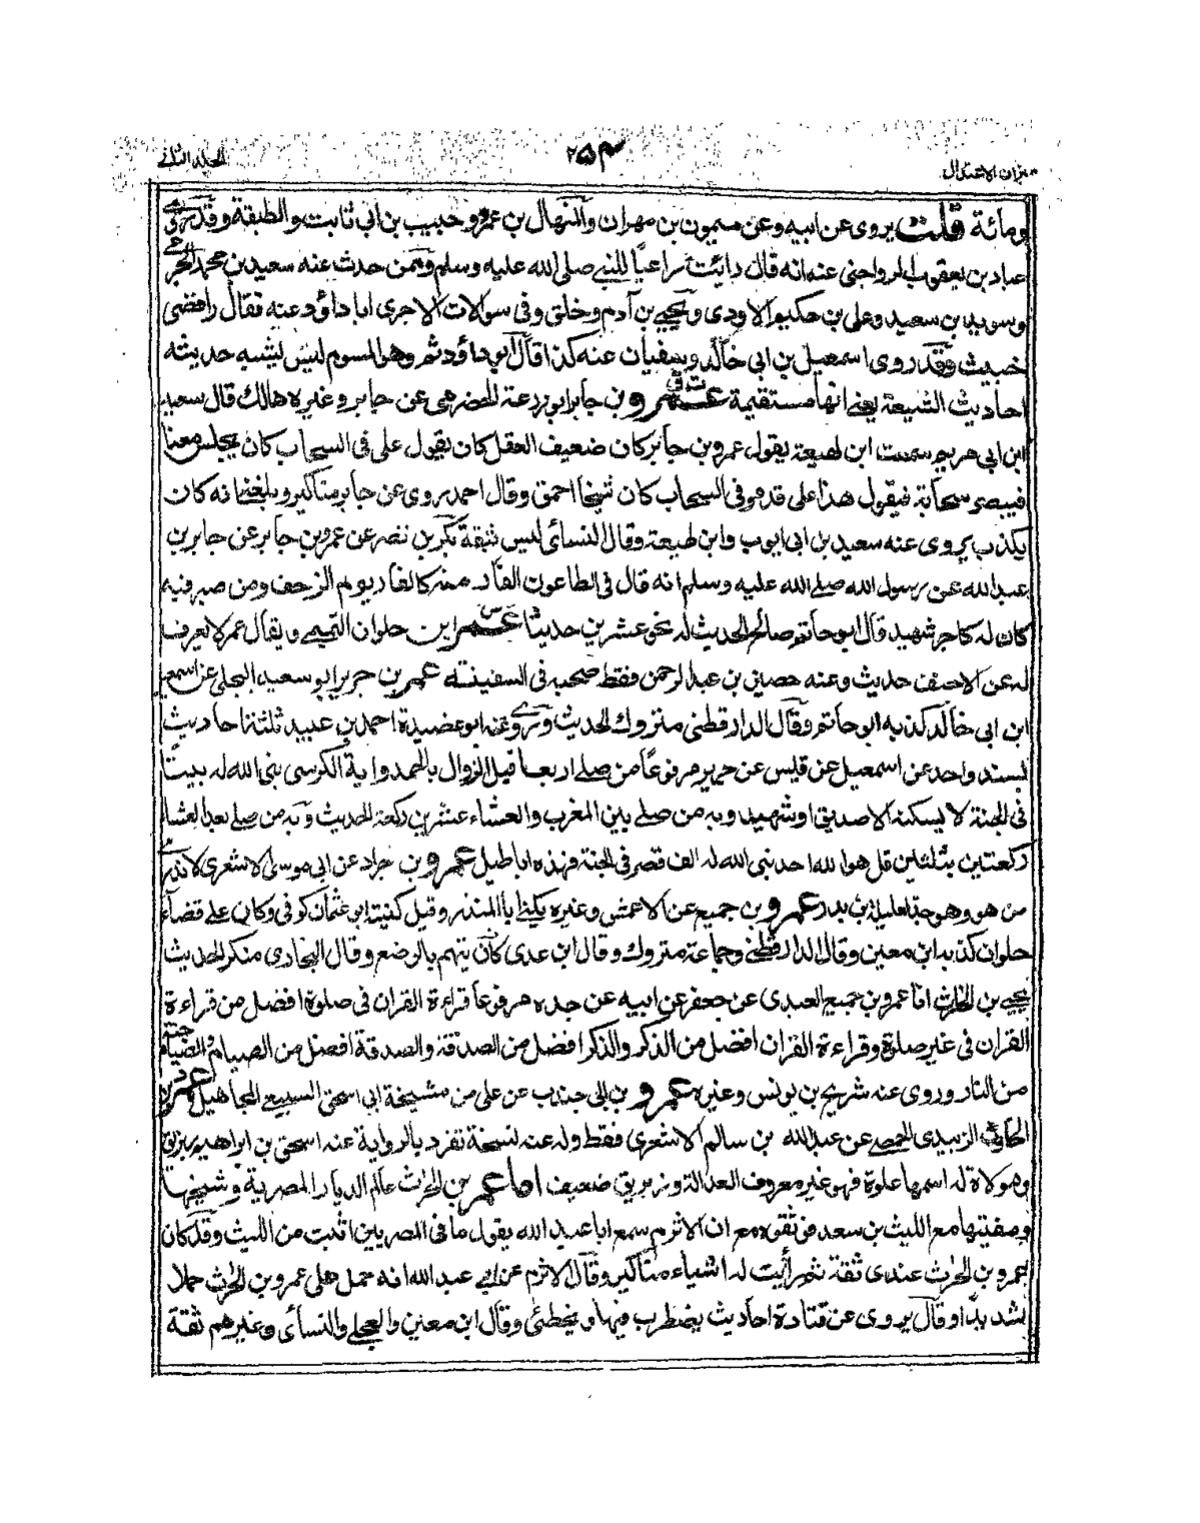 ميزان الاعتدال
۲۵۴
المجلد الثاني
ومائة قلت يروى عن ابيه وعن ميمون بن مهران والمنهال بن عمرو وحبيب بن ابى ثابت والطبقة وقد
عباد بن يعقوب الرواجنى عنه انه قال رايت راعيا للنبي صلى الله عليه وسلم وممن حدث عنه سعيد بن محمد الجرمى
وسويد بن سعيد وعلى بن حكيم الاودى ويحيى بن آدم وخلق وفى سوالات الاجرى ابا داؤد عنه فقال رافضى
خبيث وقد روى اسمعيل بن ابى خالد وسفيان عنه كذا قال ابو داؤد ثم وهو المسوم ليس يشبه حديثه
احاديث الشيعة يعنى انها مستقيمة عمرو بن جابر ابو زرعة الحضرمى عن جابر وغيره هالك قال سعيد
ابن ابى مريم سمعت ابن لهيعة يقول عمرو بن جابر كان ضعيف العقل كان يقول على فى السحاب كان يجلس معنا
فيبصر سحابة فيقول هذا على قد مر فى السحاب كان شيخا احمق وقال احمد روى عن جابر مناكير وبلغنى انه كان
يكذب يروى عنه سعيد بن ابى ايوب وابن لهيعة وقال النسائى ليس بثقة بكر بن نصر عن عمرو بن جابر عن جابر بن
عبد الله عن رسول الله صلى الله عليه وسلم انه قال فى الطاعون الفار منه كالفار يوم الزحف ومن صبر فيه
كان له كاجر شهيد قال ابو حاتم صالح الحديث له نحو عشرين حديثا عمر ابن حلوان التميمى ويقال عمر لا يعرف
له عن الاحنف حديث وعنه حصين بن عبد الرحمن فقط صحبه فى السفينة عمر بن جرير ابو سعيد البجلى عن اسمعيل
ابن ابى خالد كذبه ابو حاتم وقال الدارقطنى متروك الحديث وعنه ابو عضيدة احمد بن عبيد ثلثة احاديث
بسند واحد عن اسمعيل عن قيس عن جرير مرفوعا من صلى اربعا قبل الزوال بالحمد واية الكرسى بنى الله له بيتا
فى الجنة لا يسكنه الا صديق او شهيد وبه من صلى بين المغرب والعشاء عشرين ركعة الحديث وبه من صلى بعد العشا
ركعتين بثلثين قل هو الله احد بنى الله له الف قصر فى الجنة فهذه اباطيل عمرو بن جراد عن ابى موسى الاشعرى لا ندرى
من هو وهو جد لعليلة بن بدر عمرو بن جميع عن الاعمش وغيره يكنى ابا المنذر وقيل كنيته ابو عثمان كوفى وكان على قضاء
حلوان كذبه ابن معين وقال الدارقطنى وجماعة متروك وقال ابن عدى كان يتهم بالوضع وقال البخارى منكر الحديث
يحيى بن الحارث انا عمرو بن جميع العبدى عن جعفر عن ابيه عن جده مرفوعا قراءة القران فى صلوة افضل من قراءة
القران فى غير صلوة وقراءة القران افضل من الذكر والذكر افضل من الصدقة والصدقة افضل من الصيام والصيام جنة
من النار وروى عنه شريح بن يونس وغيره عمرو بن ابى جندب عن على من مشيخة ابى اسحق السبيعى المجاهيل عمرو بن
الحارث الزبيدى الحمصى عن عبد الله بن سالم الاشعرى فقط وله عنه نسخة تفرد بالرواية عنه اسحق بن ابراهيم بن زبريق
ومولاة له اسمها علوة فهو غير معروف العدالة وزبريق ضعيف اما عمرو بن الحرث عالم الديار المصرية وشيخها
ومفتيها مع الليث بن سعد فوثقوه مع ان الاثرم سمع ابا عبد الله يقول ما فى المصريين اثبت من الليث وقد كان
عمرو بن الحرث عندى ثقة ثم رأيت له اشياء مناكير وقال الاثرم عن ابى عبد الله انه حمل على عمرو بن الحرث حملا
شديدا وقال يروى عن قتادة احاديث يضطرب فيها ويخطئ وقال ابن معين والعجلى والنسائى وغيرهم ثقة